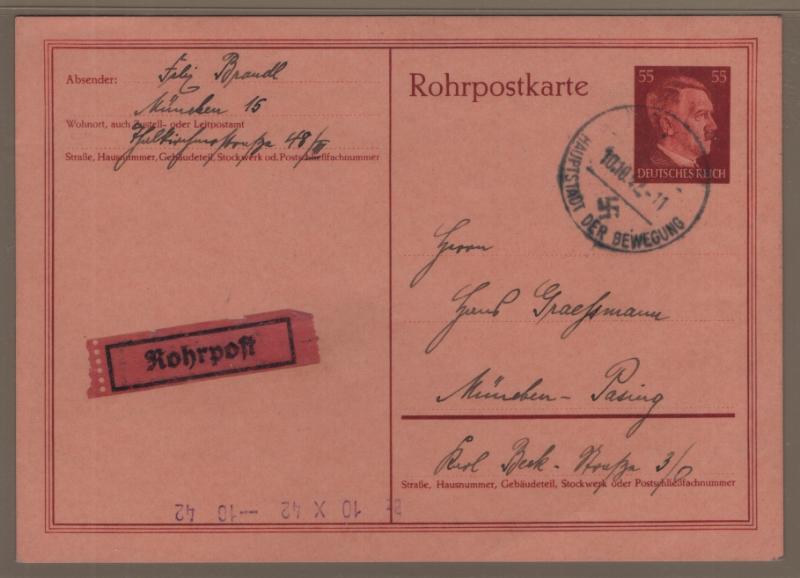 Absender: Felix Brandl
München 15
Wohnort, auch Zustell- oder Leitpostamt
Thalkirchnerstraße 48/III
Straße, Hausnummer, Gebäudeteil, Stockwerk od. Postschließfachnummer
Rohrpost
Rohrpostkarte
55 55
DEUTSCHES REICH
HAUPTSTADT DER BEWEGUNG
10.10.42-11
Herrn
Hans Graessmann
München-Pasing
Karl Beck-Straße 3/0
Straße, Hausnummer, Gebäudeteil, Stockwerk oder Postschließfachnummer
10 X 42 --10 42